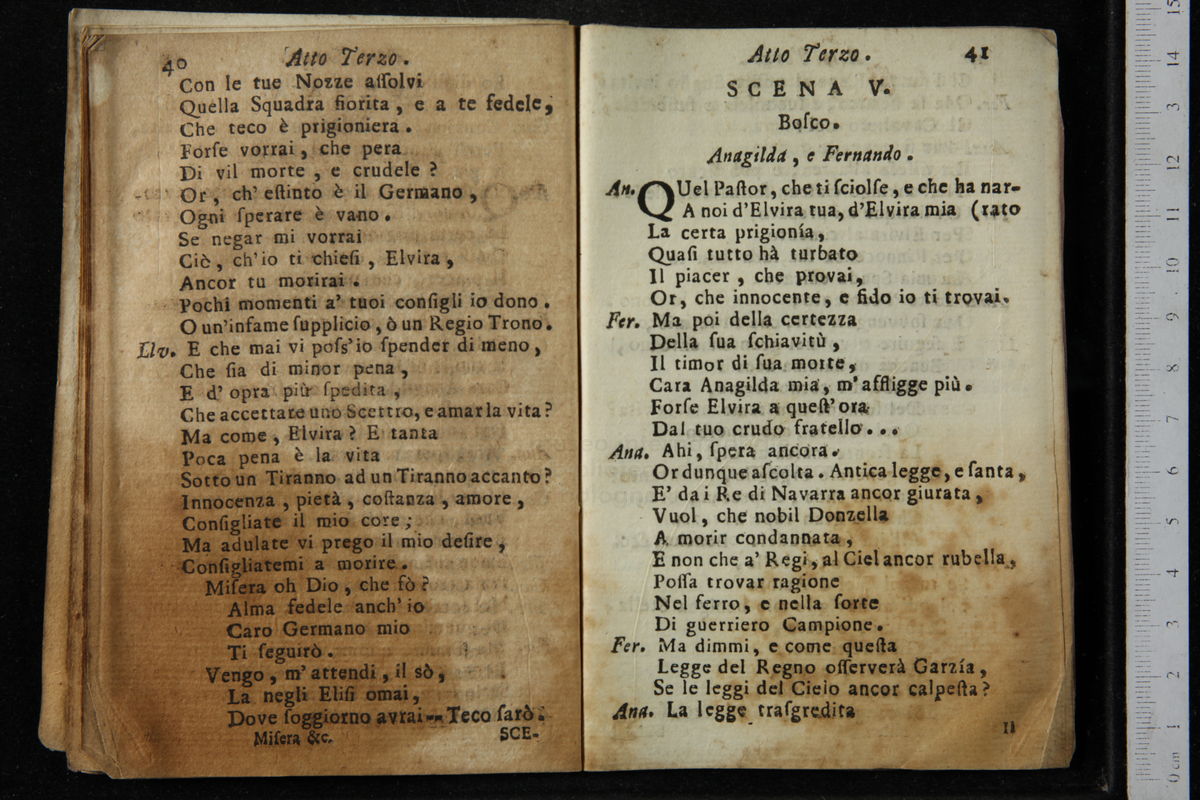 40 Atto Terzo.
Con le tue Nozze aſſolvi
Quella Squadra fiorita, e a te fedele,
Che teco è prigioniera.
Forſe vorrai, che pera
Di vil morte, e crudele?
Or, ch' eſtinto è il Germano,
Ogni ſperare è vano.
Se negar mi vorrai
Ciò, ch'io ti chieſi, Elvira,
Ancor tu morirai.
Pochi momenti a' tuoi conſigli io dono.
O un'infame ſupplicio, ò un Regio Trono.
Elv. E che mai vi poſs'io ſpender di meno,
Che ſia di minor pena,
E d' opra più ſpedita,
Che accettare uno Scettro, e amar la vita?
Ma come, Elvira? E tanta
Poca pena è la vita
Sotto un Tiranno ad un Tiranno accanto?
Innocenza, pietà, coſtanza, amore,
Conſigliate il mio core;
Ma adulate vi prego il mio deſire,
Conſigliatemi a morire.
Miſera oh Dio, che fò?
Alma fedele anch' io
Caro Germano mio
Ti ſeguirò.
Vengo, m' attendi, il sò,
La negli Eliſi omai,
Dove ſoggiorno avrai-- Teco ſarò.
Miſera &c. SCE-
Atto Terzo. 41
SCENA V.
Boſco.
Anagilda, e Fernando.
An. QUel Paſtor, che ti ſciolſe, e che ha nar-
A noi d'Elvira tua, d'Elvira mia (rato
La certa prigionía,
Quaſi tutto hà turbato
Il piacer, che provai,
Or, che innocente, e fido io ti trovai.
Fer. Ma poi della certezza
Della ſua ſchiavitù,
Il timor di ſua morte,
Cara Anagilda mia, m'affligge più.
Forſe Elvira a queſt' ora
Dal tuo crudo fratello...
Ana. Ahi, ſpera ancora.
Or dunque aſcolta. Antica legge, e ſanta,
E' da i Re di Navarra ancor giurata,
Vuol, che nobil Donzella
A morir condannata,
E non che a' Regi, al Ciel ancor rubella,
Poſſa trovar ragione
Nel ferro, e nella ſorte
Di guerriero Campione.
Fer. Ma dimmi, e come queſta
Legge del Regno oſſerverà Garzía,
Se le leggi del Cielo ancor calpeſta?
Ana. La legge traſgredita
Il
15
14
13
12
11
10
9
8
7
6
5
4
3
2
1
0 cm